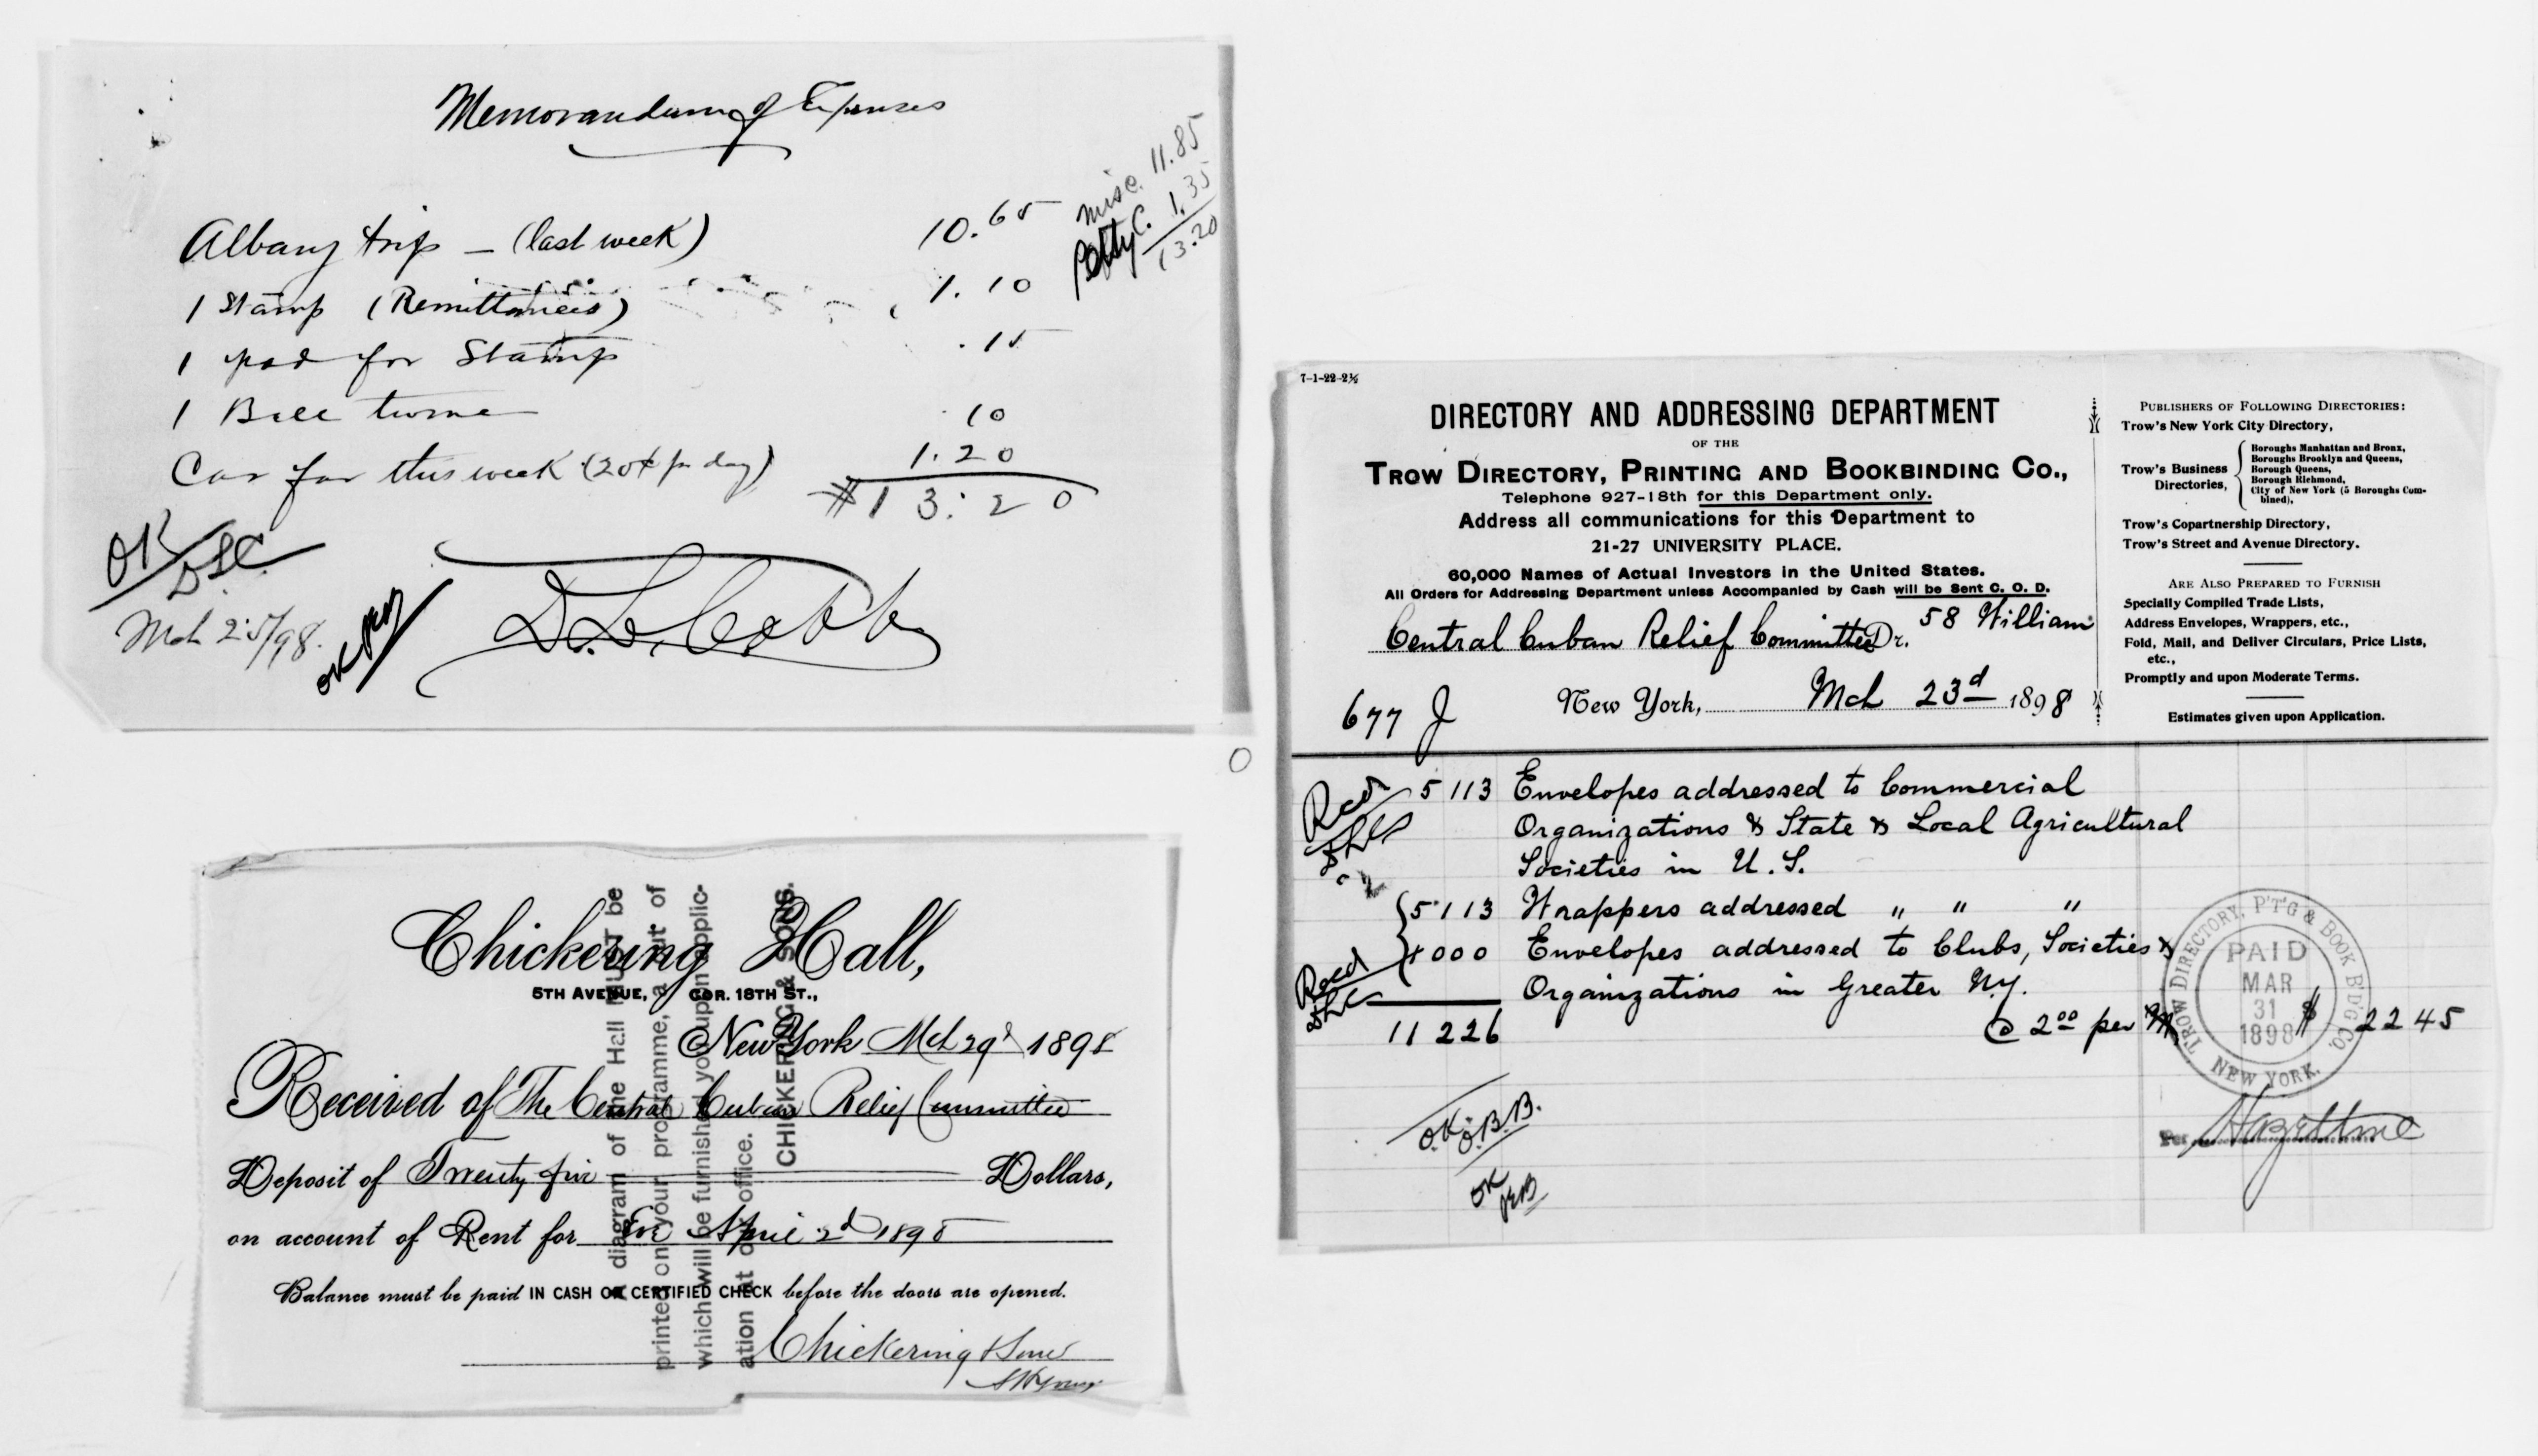 Memorandum of Expenses
Albany trip — (last week) 10.65
1 Stamp (Remittances) 1.10
1 pad for Stamp .15
1 Bill .10
Car for this week (20¢ pr day) 1.20
$13.20
misc. 11.85
Petty C. 1.35
13.20
OK
DLC.
Mch 25/98.
OK
D. L. Cobb
Chickering Hall,
5TH AVENUE, COR. 18TH ST.,
New York Mch 29d 1898
Received of The Central Cuban Relief Committee
Deposit of Twenty five Dollars,
on account of Rent for Eve April 2d 1898
Balance must be paid IN CASH OR CERTIFIED CHECK before the doors are opened.
Chickering & Sons
A diagram of the Hall MUST be
printed on your programme, a cut of
which will be furnished you upon applic-
ation at office.
CHICKERING & SONS.
7-1-22-2½
DIRECTORY AND ADDRESSING DEPARTMENT
OF THE
TROW DIRECTORY, PRINTING AND BOOKBINDING CO.,
Telephone 927-18th for this Department only.
Address all communications for this Department to
21-27 UNIVERSITY PLACE.
60,000 Names of Actual Investors in the United States.
All Orders for Addressing Department unless Accompanied by Cash will be Sent C. O. D.
Central Cuban Relief Committee Dr. 58 William
677 J New York, Mch 23d 1898
PUBLISHERS OF FOLLOWING DIRECTORIES:
Trow's New York City Directory,
Trow's Business Directories,
Boroughs Manhattan and Bronx,
Boroughs Brooklyn and Queens,
Borough Queens,
Borough Richmond,
City of New York (5 Boroughs Com-
bined),
Trow's Copartnership Directory,
Trow's Street and Avenue Directory.
ARE ALSO PREPARED TO FURNISH
Specially Compiled Trade Lists,
Address Envelopes, Wrappers, etc.,
Fold, Mail, and Deliver Circulars, Price Lists,
etc.,
Promptly and upon Moderate Terms.
Estimates given upon Application.
Recd
DLC
5113 Envelopes addressed to Commercial
Organizations & State & Local Agricultural
Societies in U. S.
5113 Wrappers addressed " " "
Recd
DLC
1000 Envelopes addressed to Clubs, Societies &
Organizations in Greater N.Y.
11226 @ 200 per M $ 2245
TROW DIRECTORY, P'T'G & BOOK B'D'G CO.
PAID
MAR
31
1898
NEW YORK.
Per Hazeltine
O.K. O.B.B.
OK